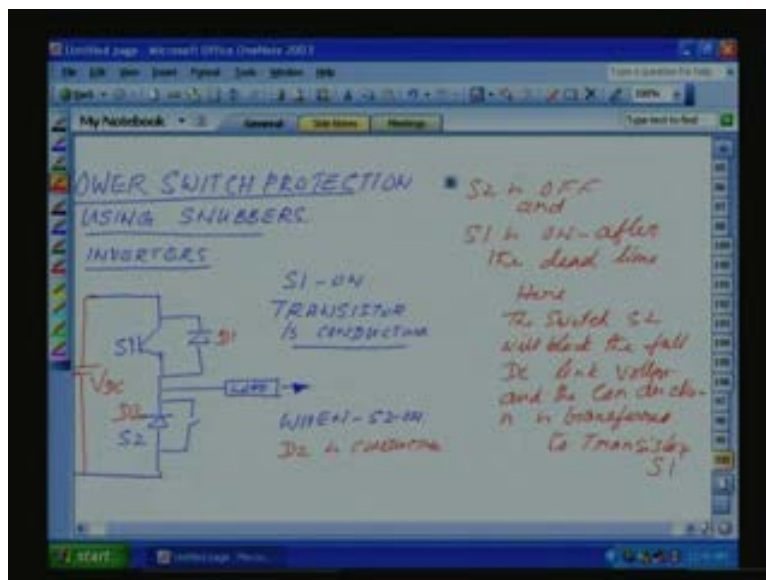 Untitled page - Microsoft Office OneNote 2003
File Edit View Insert Format Tools Window Help
Type a question for help
100%
My Notebook
General
Side Notes
Meetings
Type text to find
OWER SWITCH PROTECTION
USING SNUBBERS
INVERTORS
S1-ON
TRANSISTOR
IS CONDUCTING
S1
D1
VDC
LOAD
D2
S2
WHEN-S2-ON
D2 is CONDUCTING
S2 is OFF
and
S1 is ON-after
the dead time
Here
The Switch S2
will block the full
DC link voltage
and the Conductio-
n is transferred
to Transistor
S1
start
Untitled page - Micro...